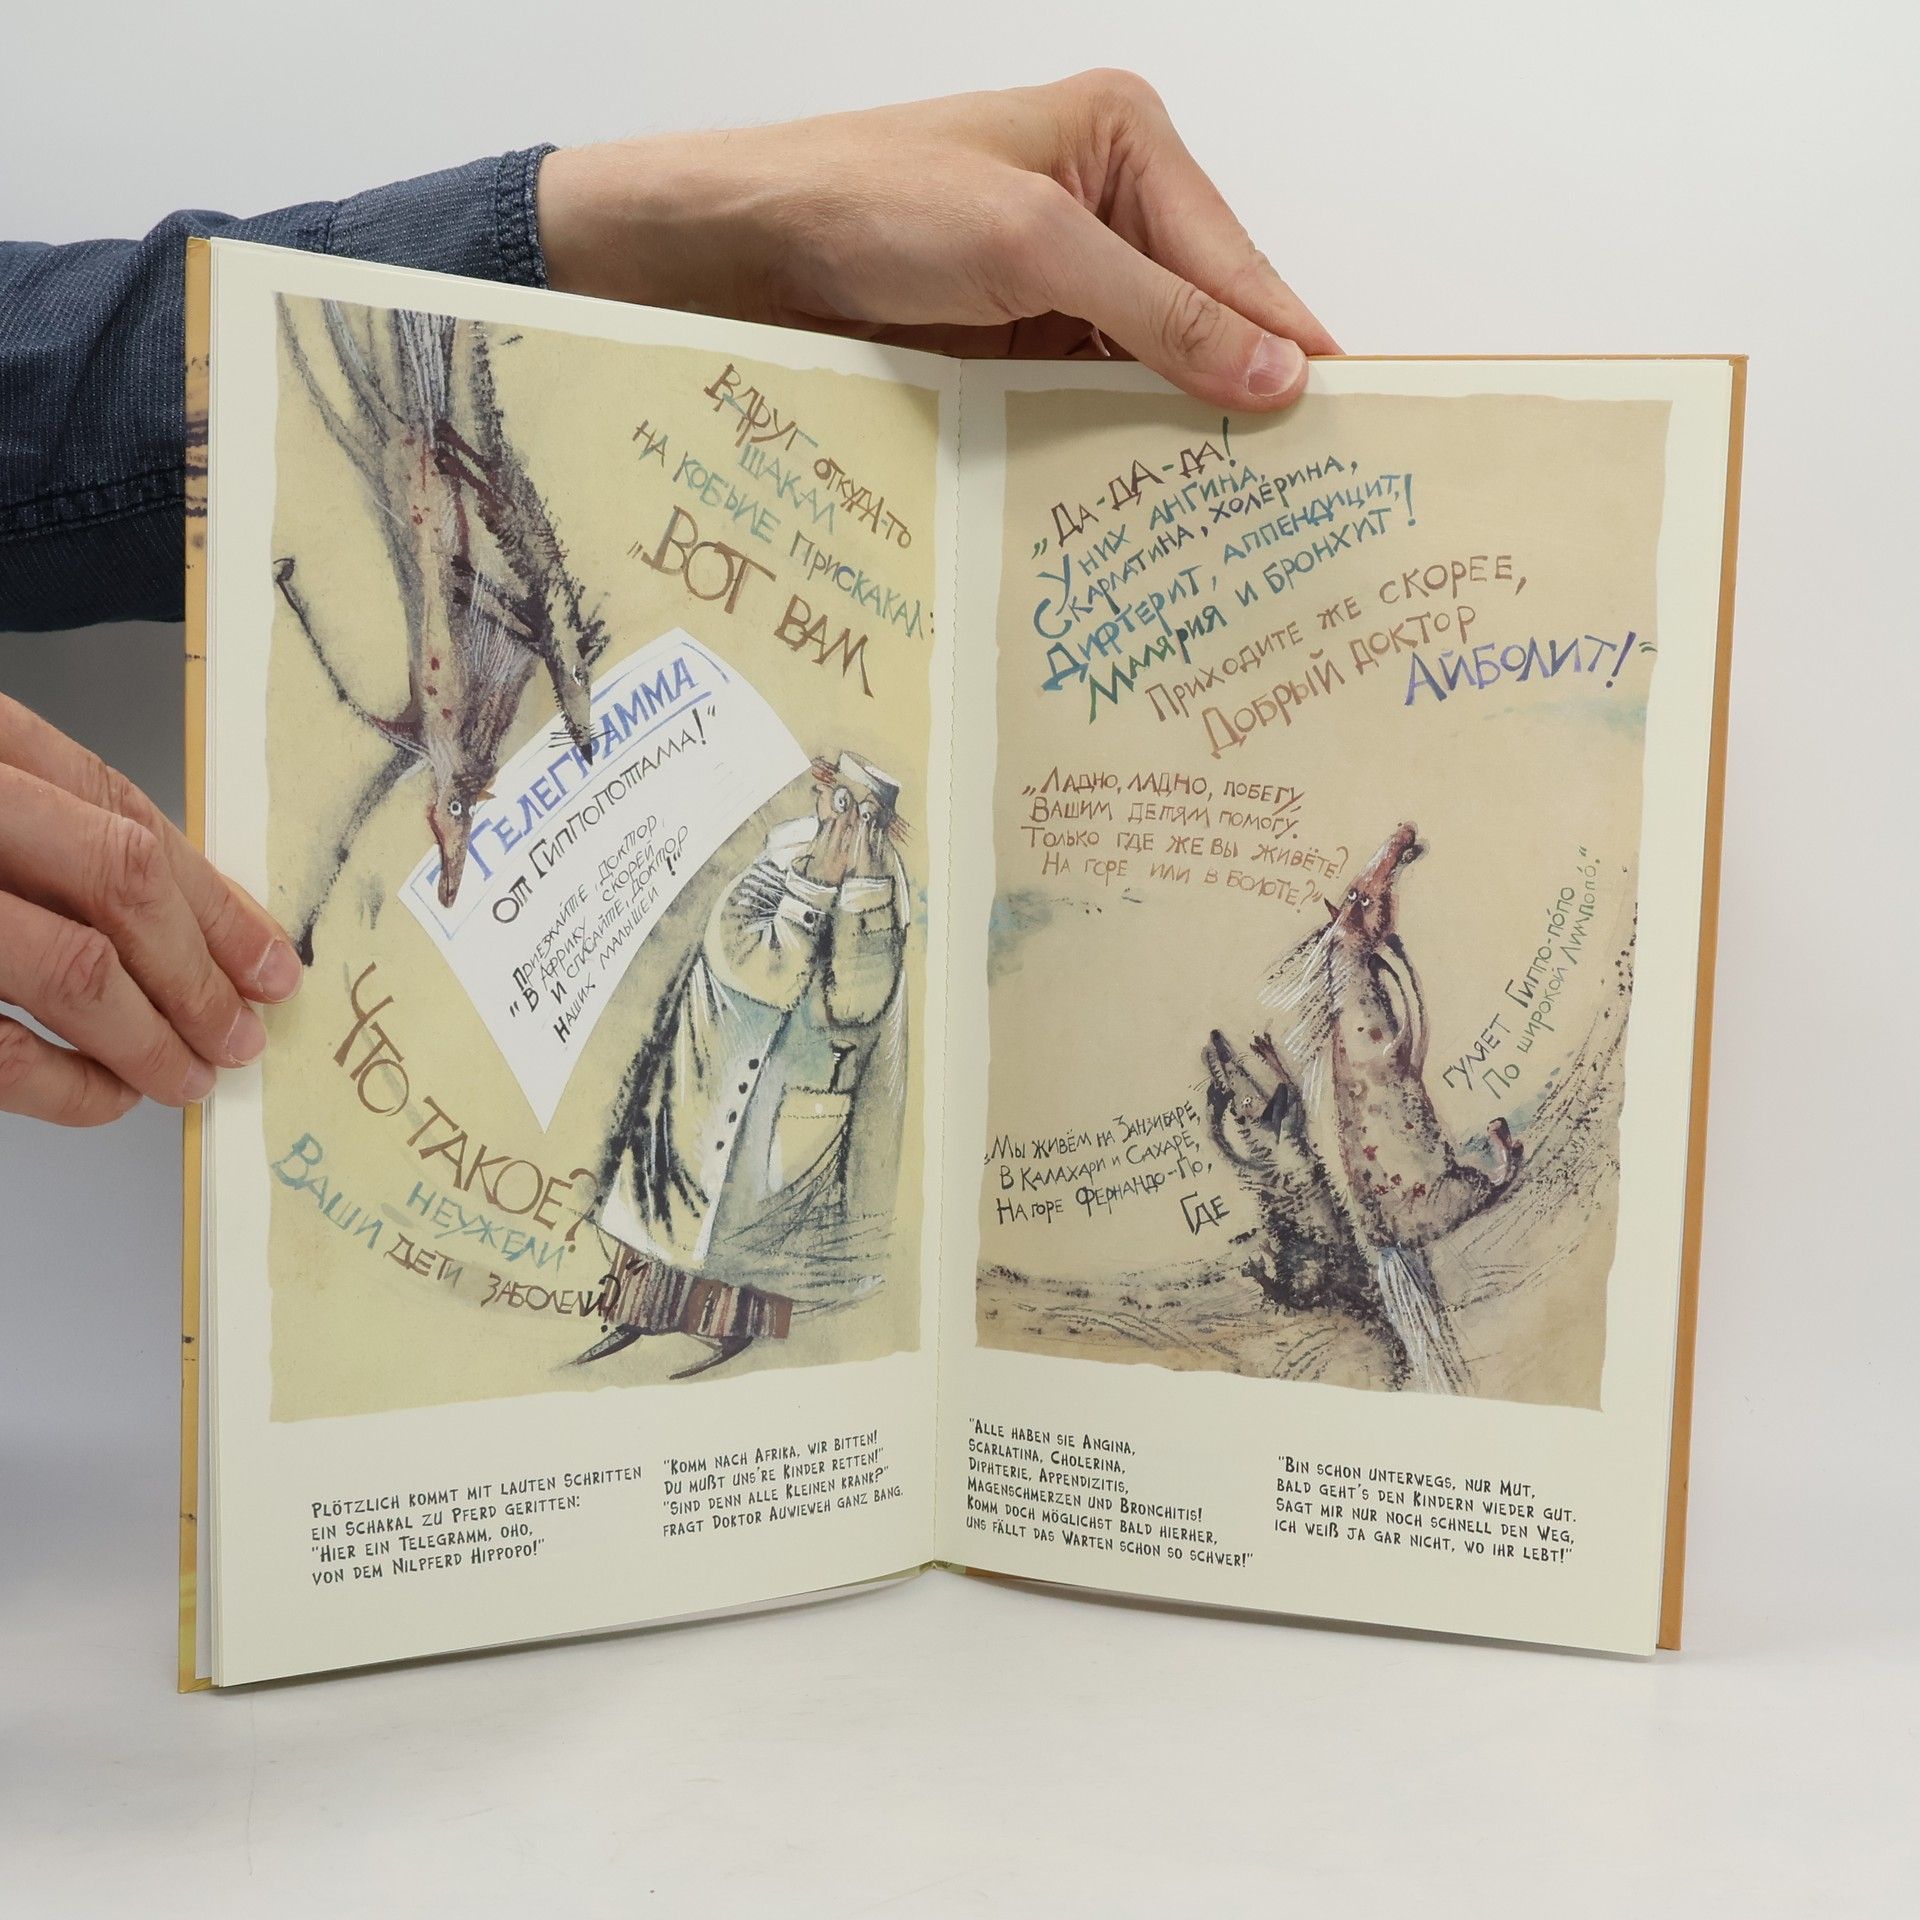 Вдруг откуда-то
шакал
на кобыле прискакал:
„Вот вам
Телеграмма
от Гиппопотама!“
„Приезжайте, доктор,
в Африку скорей
и спасайте, доктор
наших малышей!“
Что такое?
неужели
Ваши дети заболели?“
Plötzlich kommt mit lauten Schritten
ein Schakal zu Pferd geritten:
"Hier ein Telegramm, oho,
von dem Nilpferd Hippopo!"
"Komm nach Afrika, wir bitten!
Du mußt uns're Kinder retten!"
"Sind denn alle Kleinen krank?"
fragt Doktor Auwieweh ganz bang.
„Да-да-да!
У них ангина,
Скарлатина, холерина,
Дифтерит, аппендицит,
Малярия и бронхит!
Приходите же скорее,
Добрый доктор
Айболит!“
„Ладно, ладно, побегу,
Вашим детям помогу.
Только где же вы живёте?
На горе или в болоте?“
„Мы живём на Занзибаре,
В Калахари и Сахаре,
На горе Фернандо-По,
Где
гуляет Гиппо-по́по
По широкой Лимпопо́.“
"Alle haben sie Angina,
Scarlatina, Cholerina,
Diphterie, Appendizitis,
Magenschmerzen und Bronchitis!
Komm doch möglichst bald hierher,
uns fällt das Warten schon so schwer!"
"Bin schon unterwegs, nur Mut,
bald geht's den Kindern wieder gut.
Sagt mir nur noch schnell den Weg,
ich weiß ja gar nicht, wo ihr lebt!"